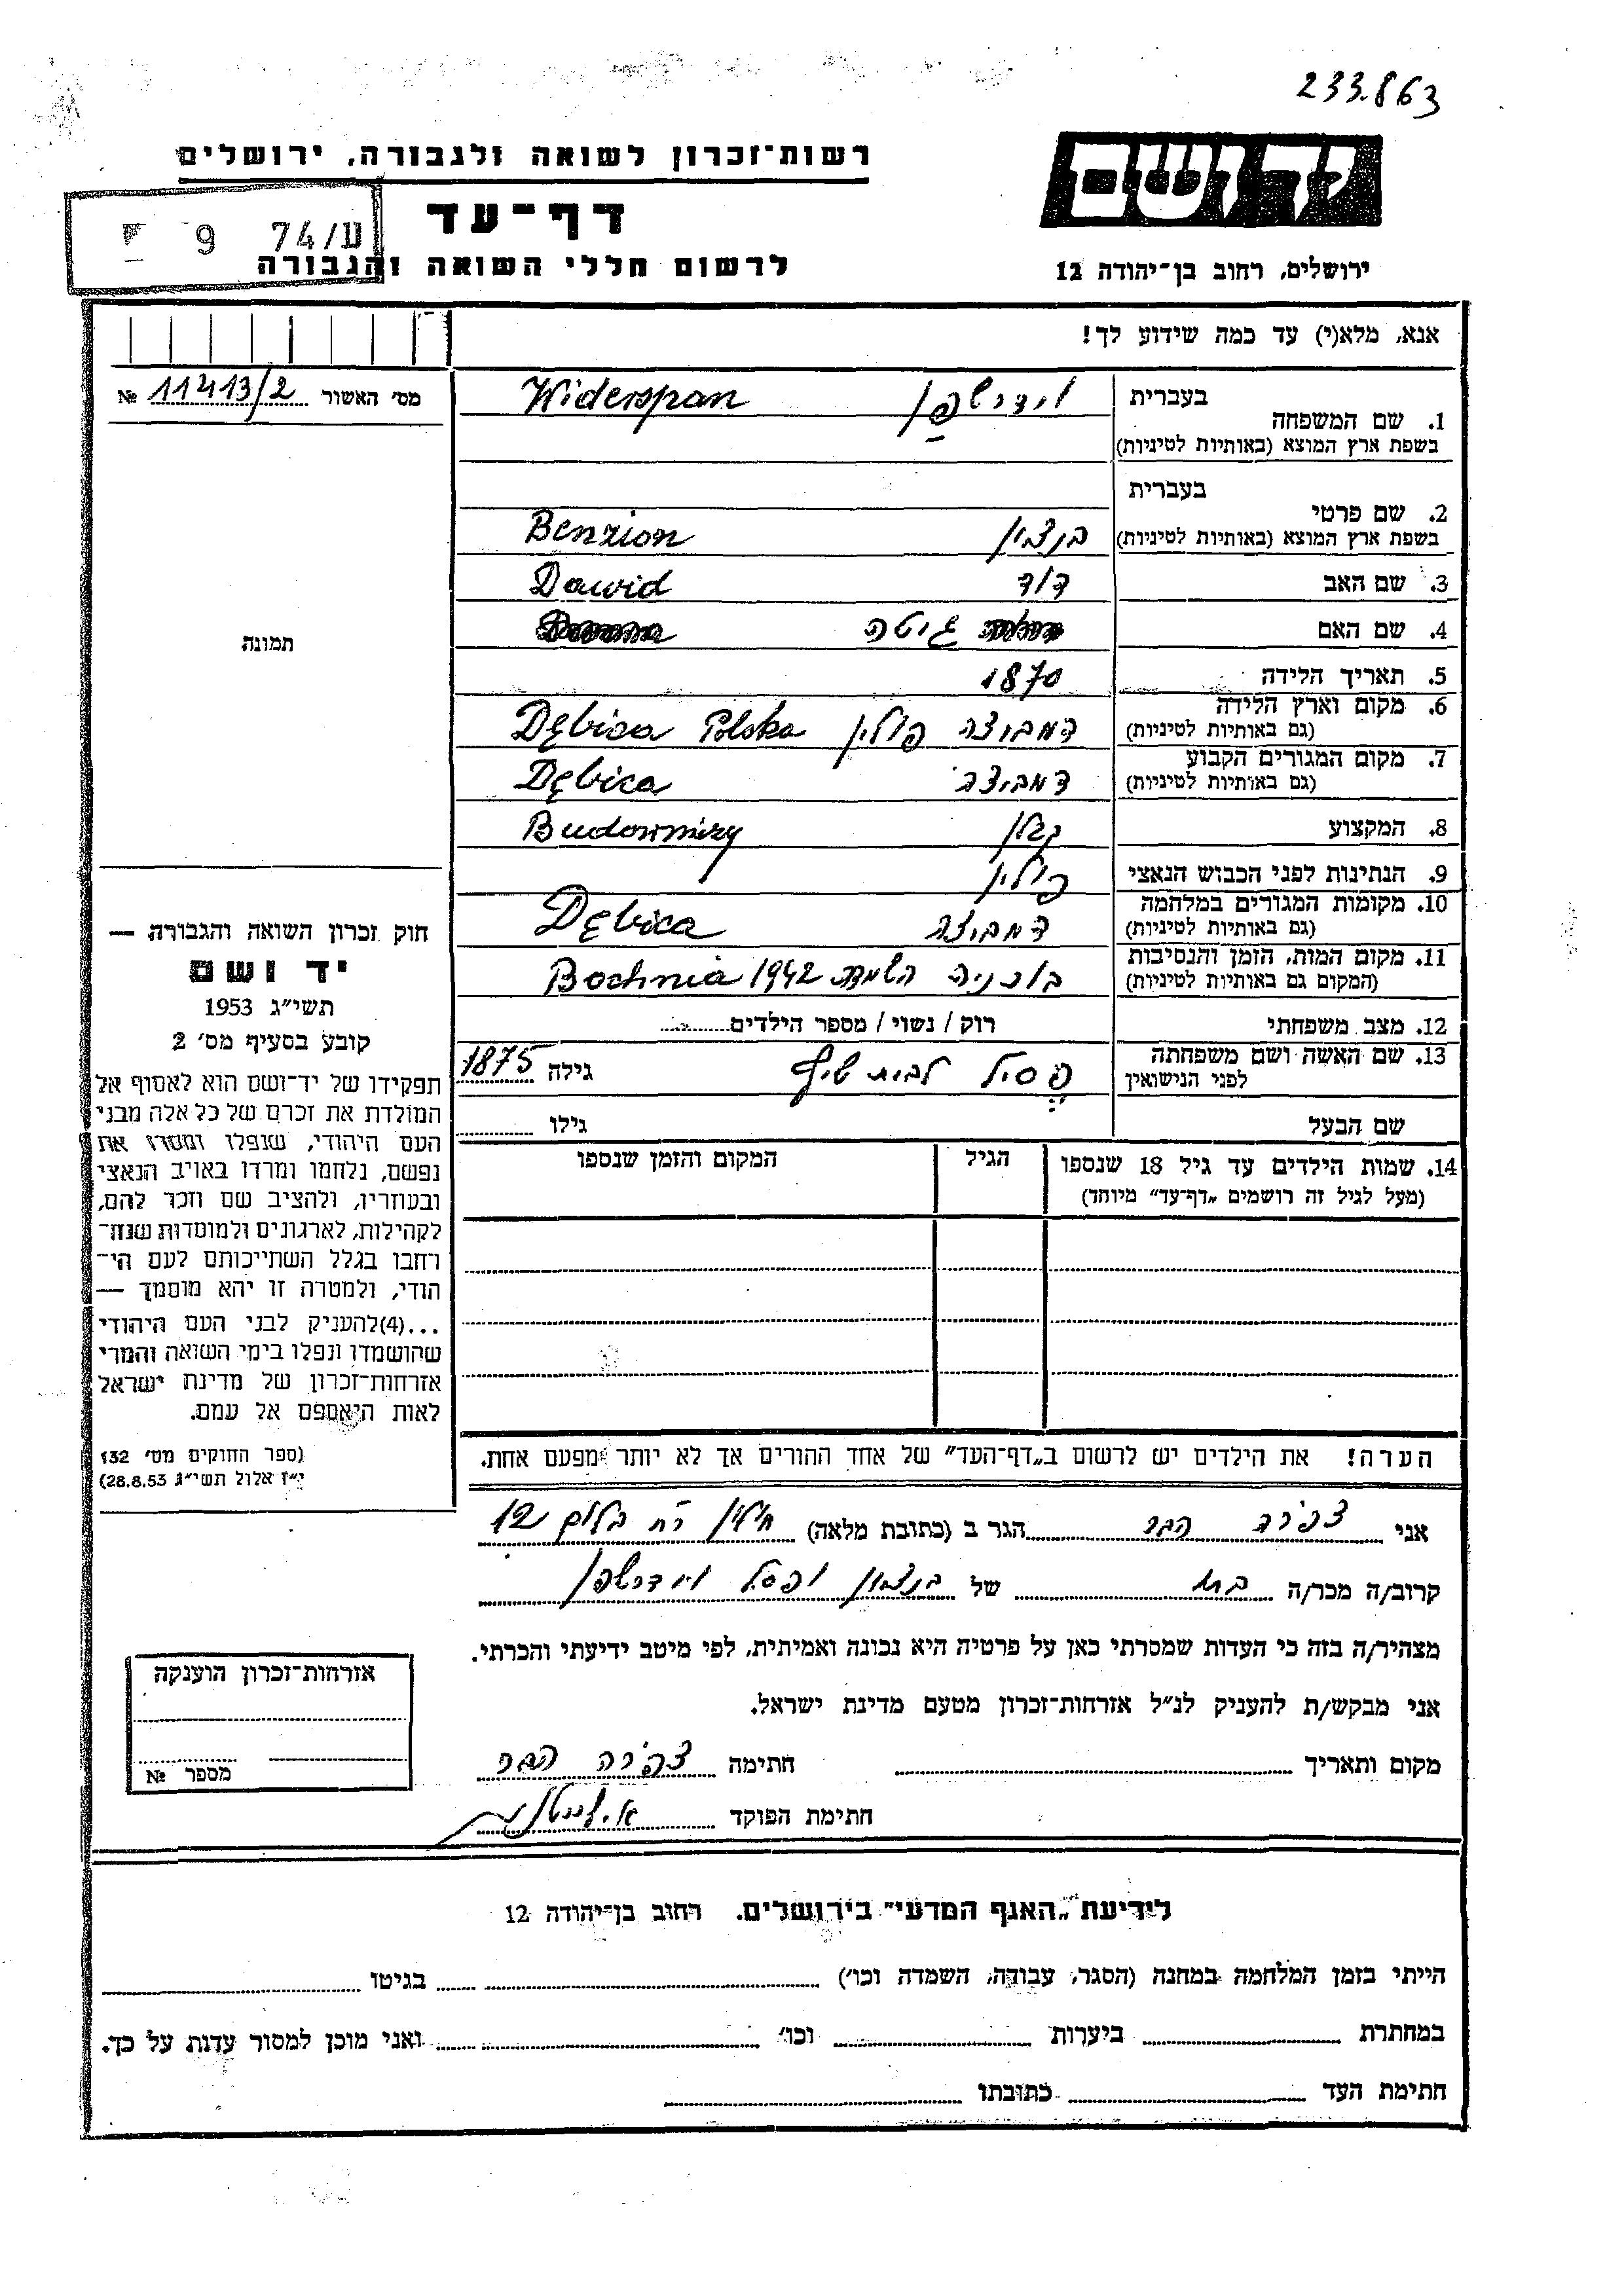 233.863
רשות-זכרון לשואה ולגבורה, ירושלים
יד ושם
דף-עד
ע/74 9
לרשום חללי השואה והגבורה
ירושלים, רחוב בן-יהודה 12
אנא, מלא(י) עד כמה שידוע לך!
מס׳ האשור 11413/2 №
בעברית
1. שם המשפחה וידרשפן Widerspan
בשפת ארץ המוצא (באותיות לטיניות)
בעברית
2. שם פרטי
בשפת ארץ המוצא (באותיות לטיניות) בנציון Benzion
3. שם האב דוד Dawid
4. שם האם גיטה
5. תאריך הלידה 1870
6. מקום וארץ הלידה
(גם באותיות לטיניות) דמביצה פולין Dębica Polska
7. מקום המגורים הקבוע
(גם באותיות לטיניות) דמביצה Dębica
8. המקצוע קבלן Budowniczy
9. הנתינות לפני הכבוש הנאצי פולין
10. מקומות המגורים במלחמה
(גם באותיות לטיניות) דמביצה Dębica
11. מקום המות, הזמן והנסיבות
(המקום גם באותיות לטיניות) בוכניה השמדה 1942 Bochnia
12. מצב משפחתי רוק / נשוי / מספר הילדים
13. שם האשה ושם משפחתה
לפני הנישואין פסיל לבית שיף גילה 1875
שם הבעל גילו
14. שמות הילדים עד גיל 18 שנספו הגיל המקום והזמן שנספו
(מעל לגיל זה רושמים „דף-עד״ מיוחד)
תמונה
חוק זכרון השואה והגבורה —
יד ושם
תשי״ג 1953
קובע בסעיף מס׳ 2
תפקידו של יד-ושם הוא לאסוף אל
המולדת את זכרם של כל אלה מבני
העם היהודי, שנפלו ומסרו את
נפשם, נלחמו ומרדו באויב הנאצי
ובעוזריו, ולהציב שם וזכר להם,
לקהילות, לארגונים ולמוסדות שנח־
רחבו בגלל השתייכותם לעם הי־
הודי, ולמטרה זו יהא מוסמך —
...(4)להעניק לבני העם היהודי
שהושמדו ונפלו בימי השואה והמרי
אזרחות-זכרון של מדינת ישראל
לאות היאספם אל עמם.
(ספר החוקים מס׳ 132
י״ז אלול תשי״ג 28.8.53)
הערה! את הילדים יש לרשום ב„דף-העד״ של אחד ההורים אך לא יותר מפעם אחת.
אני צפירה הבר הגר ב (כתובת מלאה) חולון רח בלום 12
קרוב/ה מכר/ה בת של בנציון ופסל וידרשפן
מצהיר/ה בזה כי העדות שמסרתי כאן על פרטיה היא נכונה ואמיתית, לפי מיטב ידיעתי והכרתי.
אני מבקש/ת להעניק לנ״ל אזרחות-זכרון מטעם מדינת ישראל.
מקום ותאריך חתימה צפירה הבר
חתימת הפוקד
אזרחות-זכרון הוענקה
מספר №
לידיעת „האגף המדעי״ בירושלים. רחוב בן-יהודה 12
הייתי בזמן המלחמה במחנה (הסגר, עבודה, השמדה וכו׳) בגיטו
במחתרת ביערות וכו׳ ואני מוכן למסור עדות על כך.
חתימת העד כתובתו